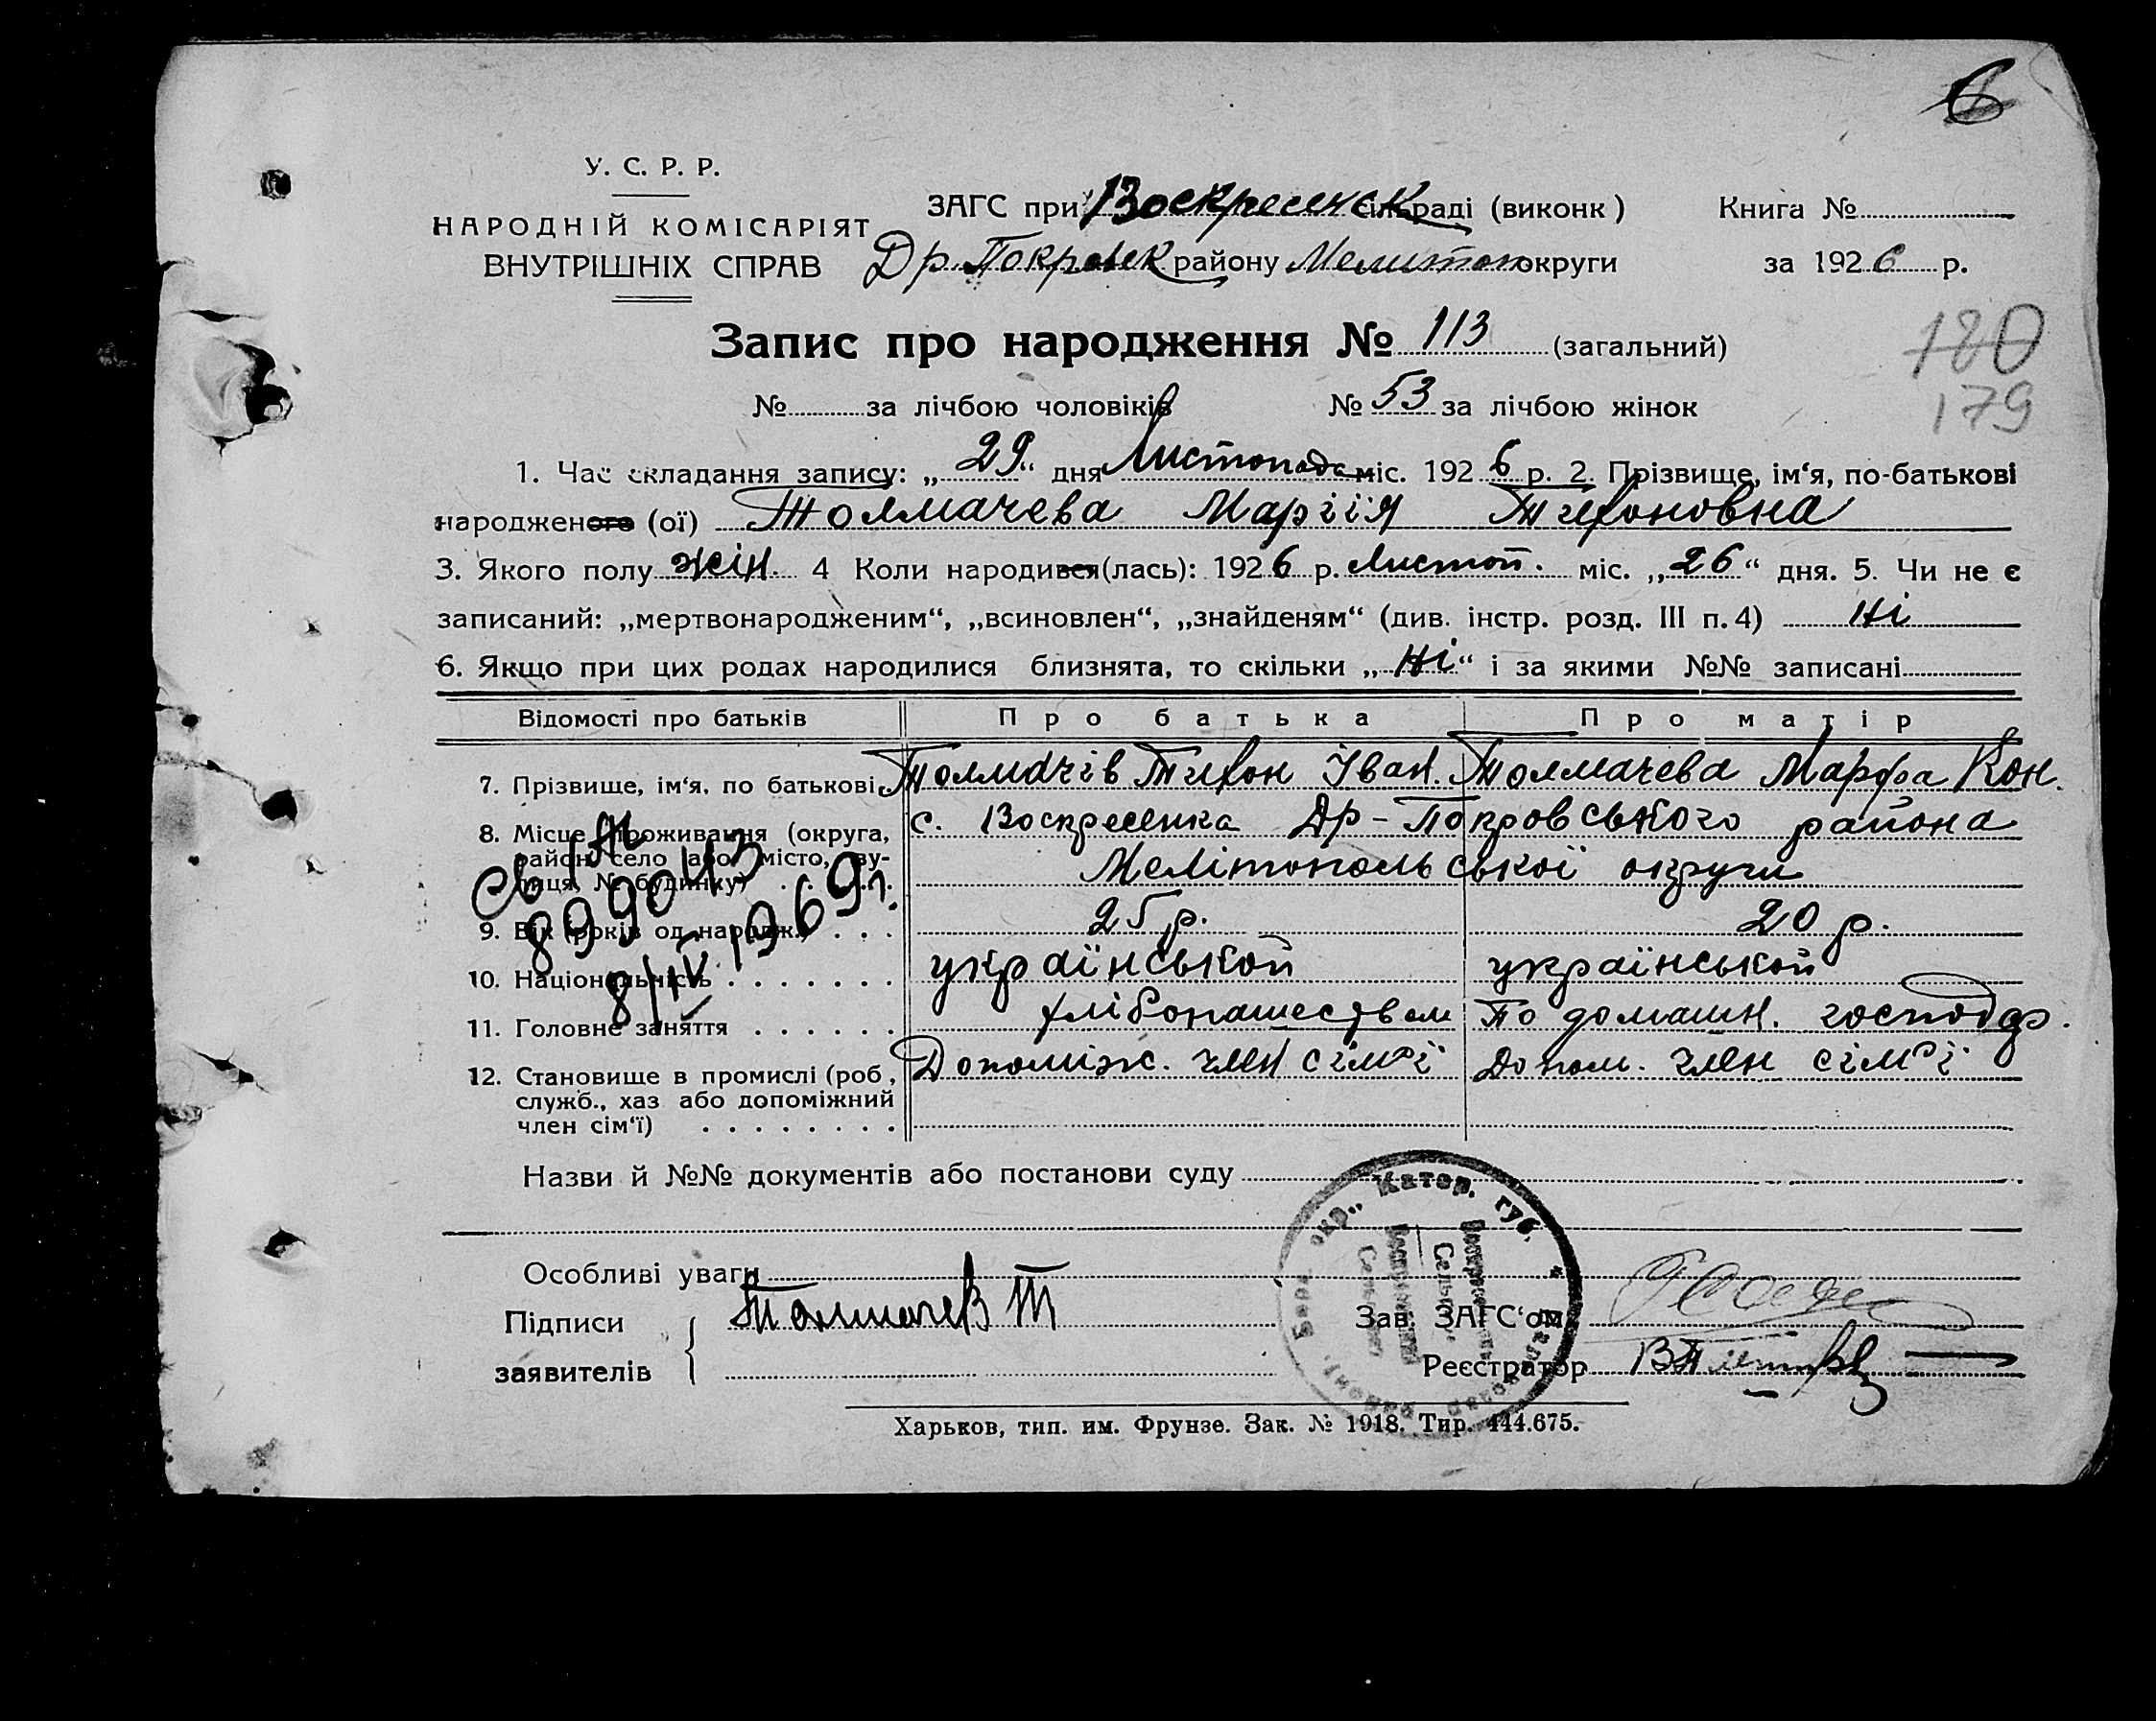 6
У. С. Р. Р.
НАРОДНІЙ КОМІСАРІЯТ
ВНУТРІШНІХ СПРАВ
ЗАГС при Воскресенск сільраді (виконк)
Книга №
Др. Покровск району Мелитоп округи
за 1926 р.
Запис про народження № 113 (загальний)
180
179
№ за лічбою чоловіків № 53 за лічбою жінок
1. Час складання запису: „29“ дня Листопада міс. 1926 р. 2. Прізвище, ім‘я, по-батькові
народженого (ої) Толмачева Маріія Тифоновна
3. Якого полу жін. 4 Коли народився (лась): 1926 р. Листоп. міс. „26“ дня. 5. Чи не є
записаний: „мертвонародженим“, „всиновлен“, „знайденям“ (див. інстр. розд. III п. 4) Ні
6. Якщо при цих родах народилися близнята, то скільки „Ні“ і за якими №№ записані
Відомості про батьків Про батька Про матір
7. Прізвище, ім‘я, по батькові Толмачів Тифон Іван. Толмачева Марфа Кон.
8. Місце проживання (округа, район, село або місто, ву-
лиця, № будинку) с. Воскресенка Др-Покровського района
Мелітопольської округи
9. Вік (років од народж.) 25 р. 20 р.
10. Національність українськой українськой
11. Головне заняття хлібопашеством По домашн. господар.
12. Становище в промислі (роб., Допоміж. член сімї Допом. член сімї
служб., хаз або допоміжний
член сім‘ї)
899043
8/IV 1969г.
Назви й №№ документів або постанови суду
Катер. губ.
Особливі уваги
Підписи Толмачев Т
заявителів
Зав. ЗАГС‘ом
Реєстратор
Харьков, тип. им. Фрунзе. Зак. № 1918. Тир. 444.675.